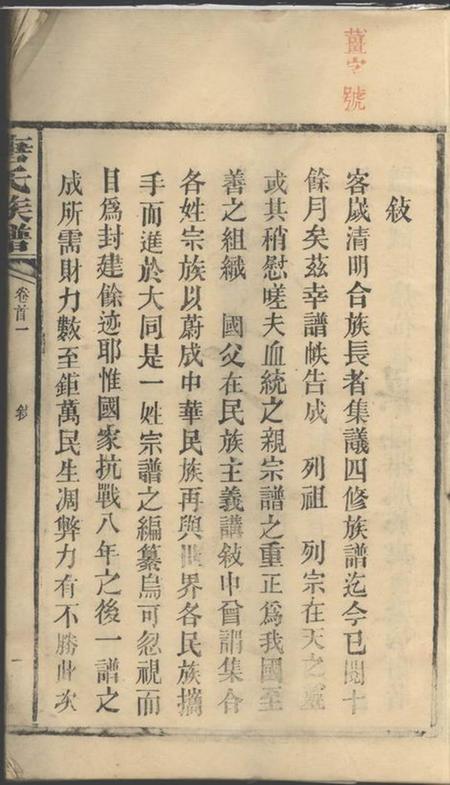 薑字號
敍
客歲清明合族長者集議四修族譜迄今已閱十
餘月矣茲幸譜帙告成 列祖 列宗在天之靈
或其稍慰嗟夫血統之親宗譜之重正爲我國至
善之組織 國父在民族主義講敍中曾謂集合
各姓宗族以蔚成中華民族再與世界各民族攜
手而進於大同是一姓宗譜之編纂烏可忽視而
目爲封建餘迹耶惟國家抗戰八年之後一譜之
成所需財力數至鉅萬民生凋弊力有不勝此次
唐氏族譜
卷首一
敍
一